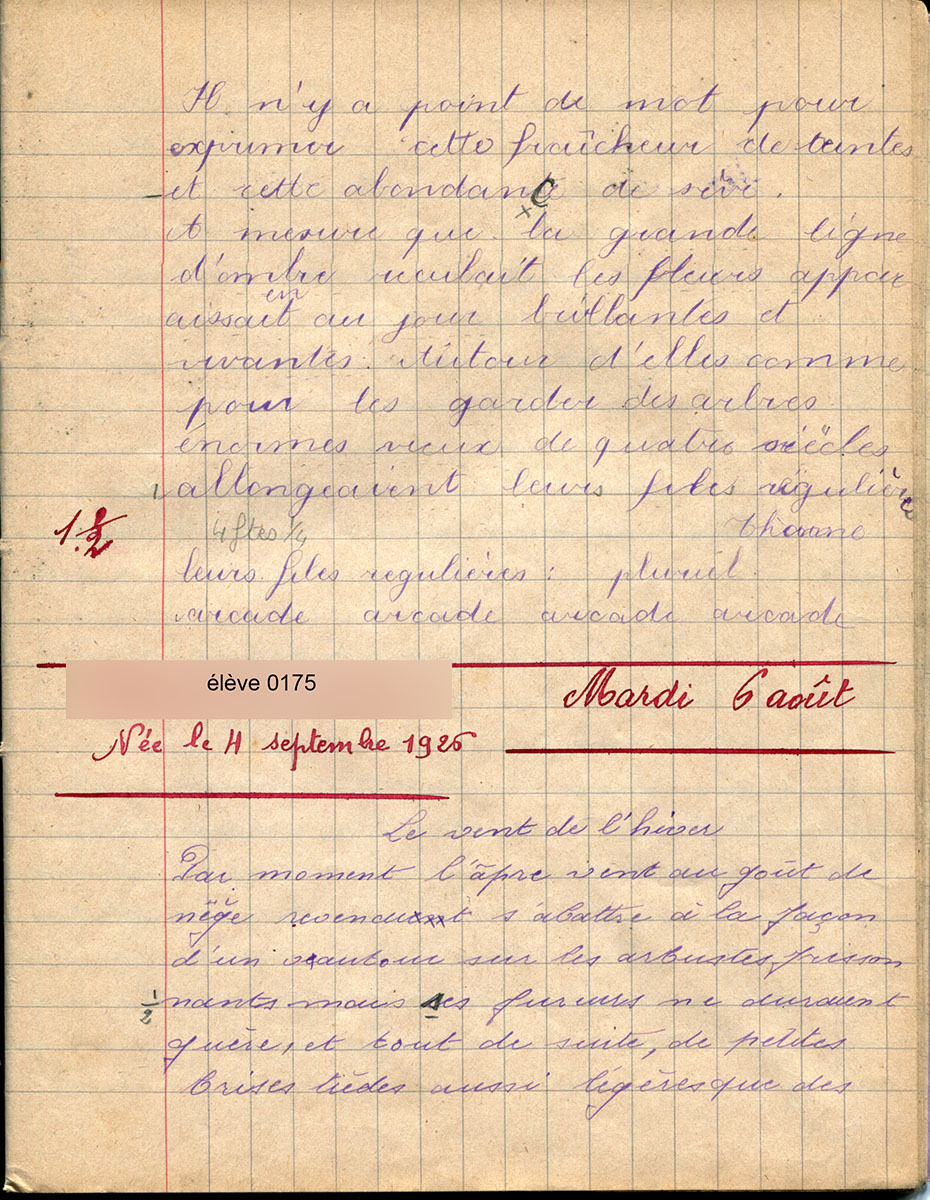 Il n'y a point de mot pour
exprimer cette fraîcheur de teintes
et cette abondance de sève.
A mesure que la grande ligne
d'ombre reculait les fleurs appar
aissaient au jour brillantes et
vivantes. Autour d'elles comme
pour les garder des arbres
énormes vieux de quatre siècles
allongeaient leurs files régulières
1 f 1/2
4 ftes 1/4
leurs files regulières : pluriel.
arcade arcade arcade arcade
élève 0175
Mardi 6 août
Née le 4 septembre 1926
Le vent de l'hiver
Par moment l'âpre vent au goût de
neige revenait s'abattre à la façon
d'un vautour sur les arbustes frisson
1/2 nants mais ses fureurs ne duraient
guère, et tout de suite, de petites
brises tièdes aussi légères que des